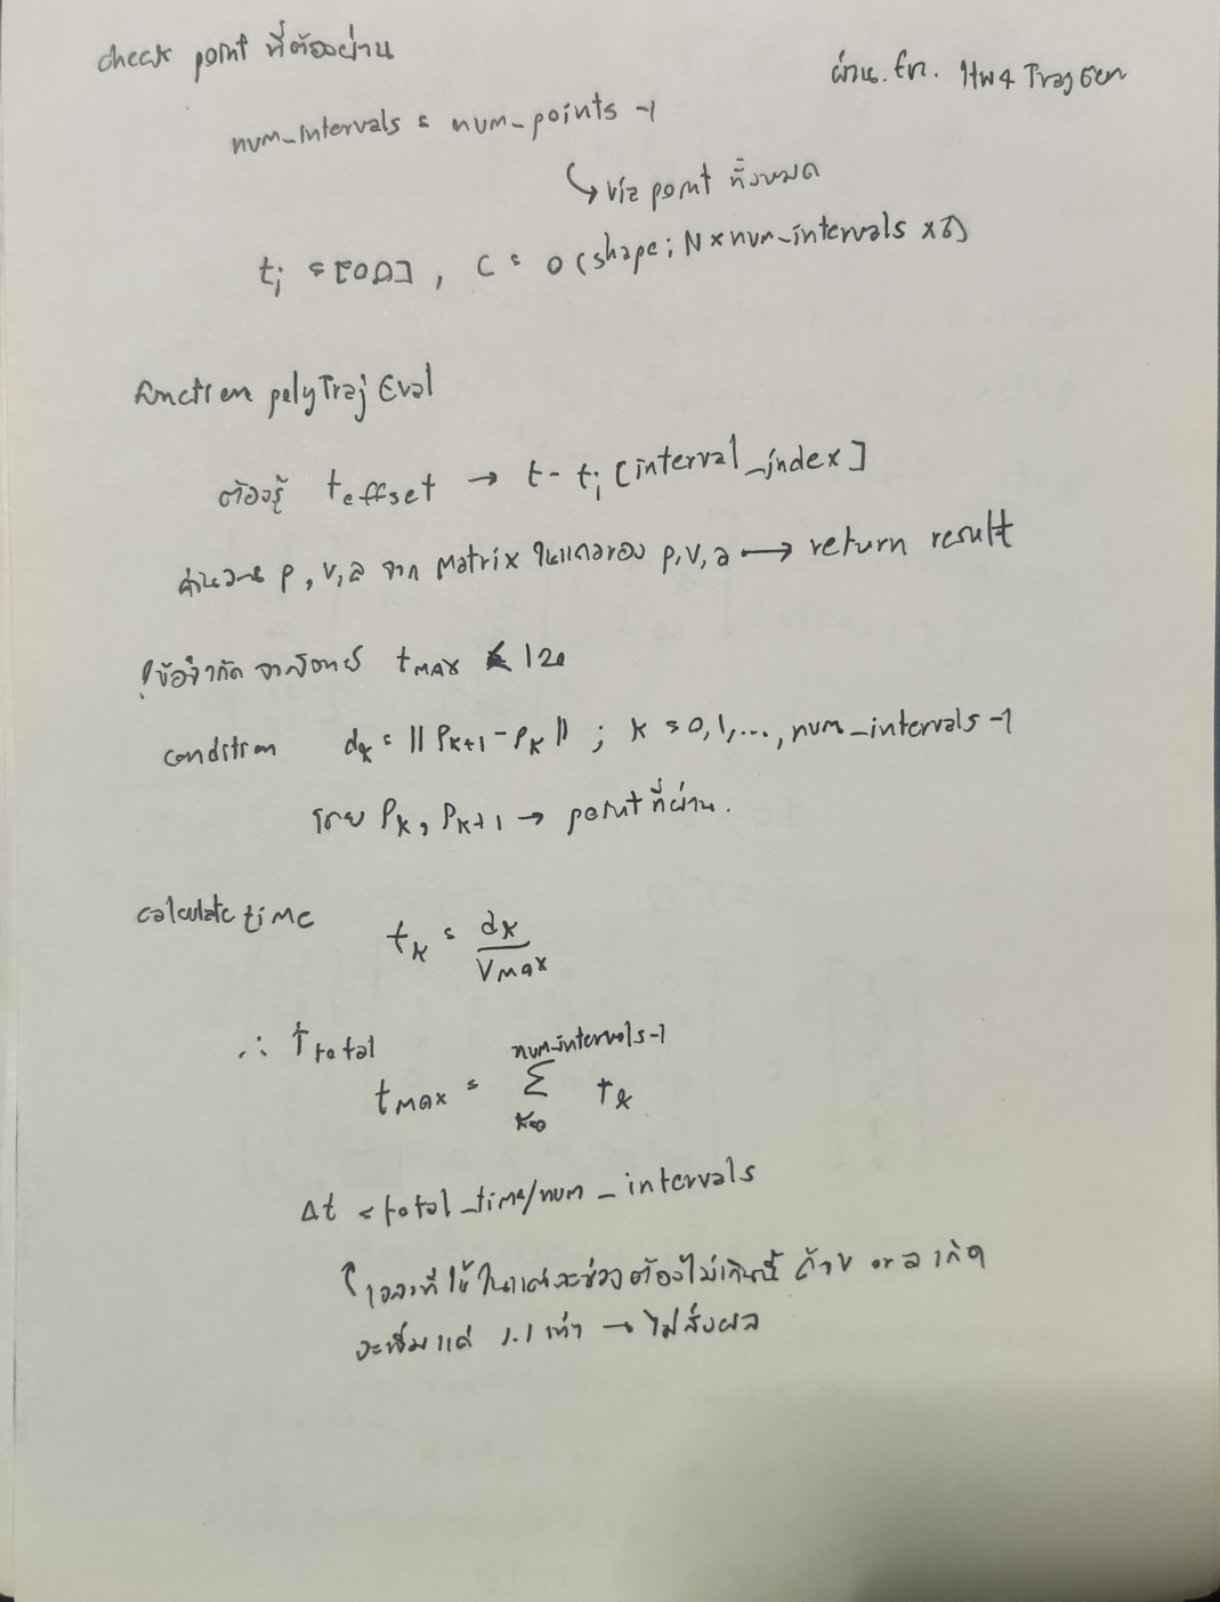 check point ที่ต้องผ่าน
ผ่าน. fn. HW4 TrajGen
num_intervals = num_points -1
↳ via point ทั้งหมด
ti = [0], C = 0 (shape; N × num_intervals × 6)
function polyTrajEval
ต้องรู้ toffset → t - ti [interval_index]
คำนวณ p, v, a จาก Matrix ในแถวของ p, v, a → return result
! ข้อจำกัด จากโจทย์ tMAX < 120
condition dk = || Pk+1 - Pk || ; k = 0, 1, ..., num_intervals -1
โดย Pk, Pk+1 → point ที่ผ่าน.
calculate time tk = dk / VMAX
∴ Ttotal
num_intervals -1
tMAX = Σ tk
k=0
Δt = total_time/num_intervals
↑ เวลาที่ใช้ในแต่ละช่วงต้องไม่เกินนี้ ถ้า v or a เกิน
จะเพิ่มแค่ 1.1 เท่า → ไม่ส่งผล